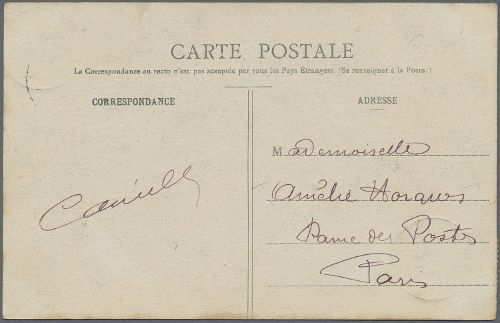 CARTE POSTALE
La Correspondance au recto n'est pas acceptée par tous les Pays Étrangers (Se renseigner à la Poste.)
CORRESPONDANCE
ADRESSE
Mademoiselle
Amélie
Dame des Postes
Paris
Camille